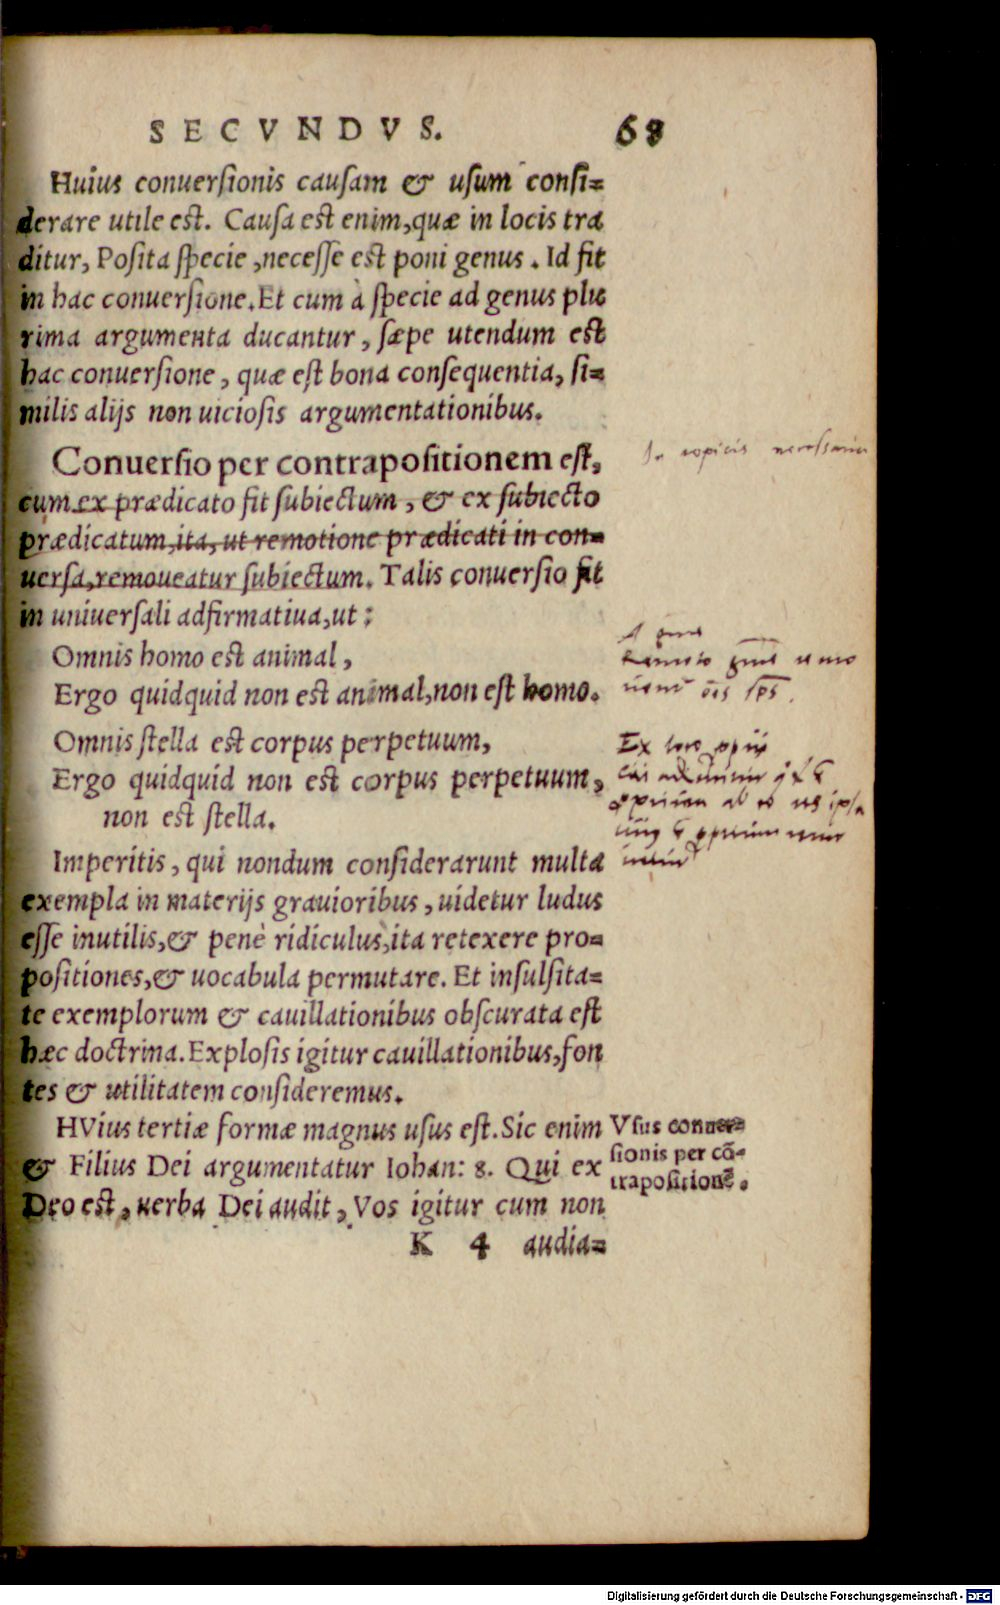 SECVNDVS. 68
Huius conuersionis causam & usum consi=
derare utile est. Causa est enim, quæ in locis tra
ditur, Posita specie, necesse est poni genus. Id fit
in hac conuersione. Et cum à specie ad genus plu
rima argumenta ducantur, sæpe utendum est
hac conuersione, quæ est bona consequentia, si=
milis alijs non uiciosis argumentationibus.
Conuersio per contrapositionem est,
cum ex prædicato fit subiectum, & ex subiecto
prædicatum, ita, ut remotione prædicati in con=
uersa, remoueatur subiectum. Talis conuersio fit
in uniuersali adfirmatiua, ut:
Omnis homo est animal,
Ergo quidquid non est animal, non est homo.
Omnis stella est corpus perpetuum,
Ergo quidquid non est corpus perpetuum,
non est stella.
Imperitis, qui nondum considerarunt multa
exempla in materijs grauioribus, uidetur ludus
esse inutilis, & penè ridiculus, ita retexere pro=
positiones, & uocabula permutare. Et insulsita=
te exemplorum & cauillationibus obscurata est
hæc doctrina. Explosis igitur cauillationibus, fon
tes & utilitatem consideremus.
HVius tertiæ formæ magnus usus est. Sic enim
& Filius Dei argumentatur Iohan: 8. Qui ex
Deo est, uerba Dei audit, Vos igitur cum non
K 4 audia=
Vsus conuer=
sionis per cō=
trapositionē.
In topicis
Ex loco
Digitalisierung gefördert durch die Deutsche Forschungsgemeinschaft - DFG